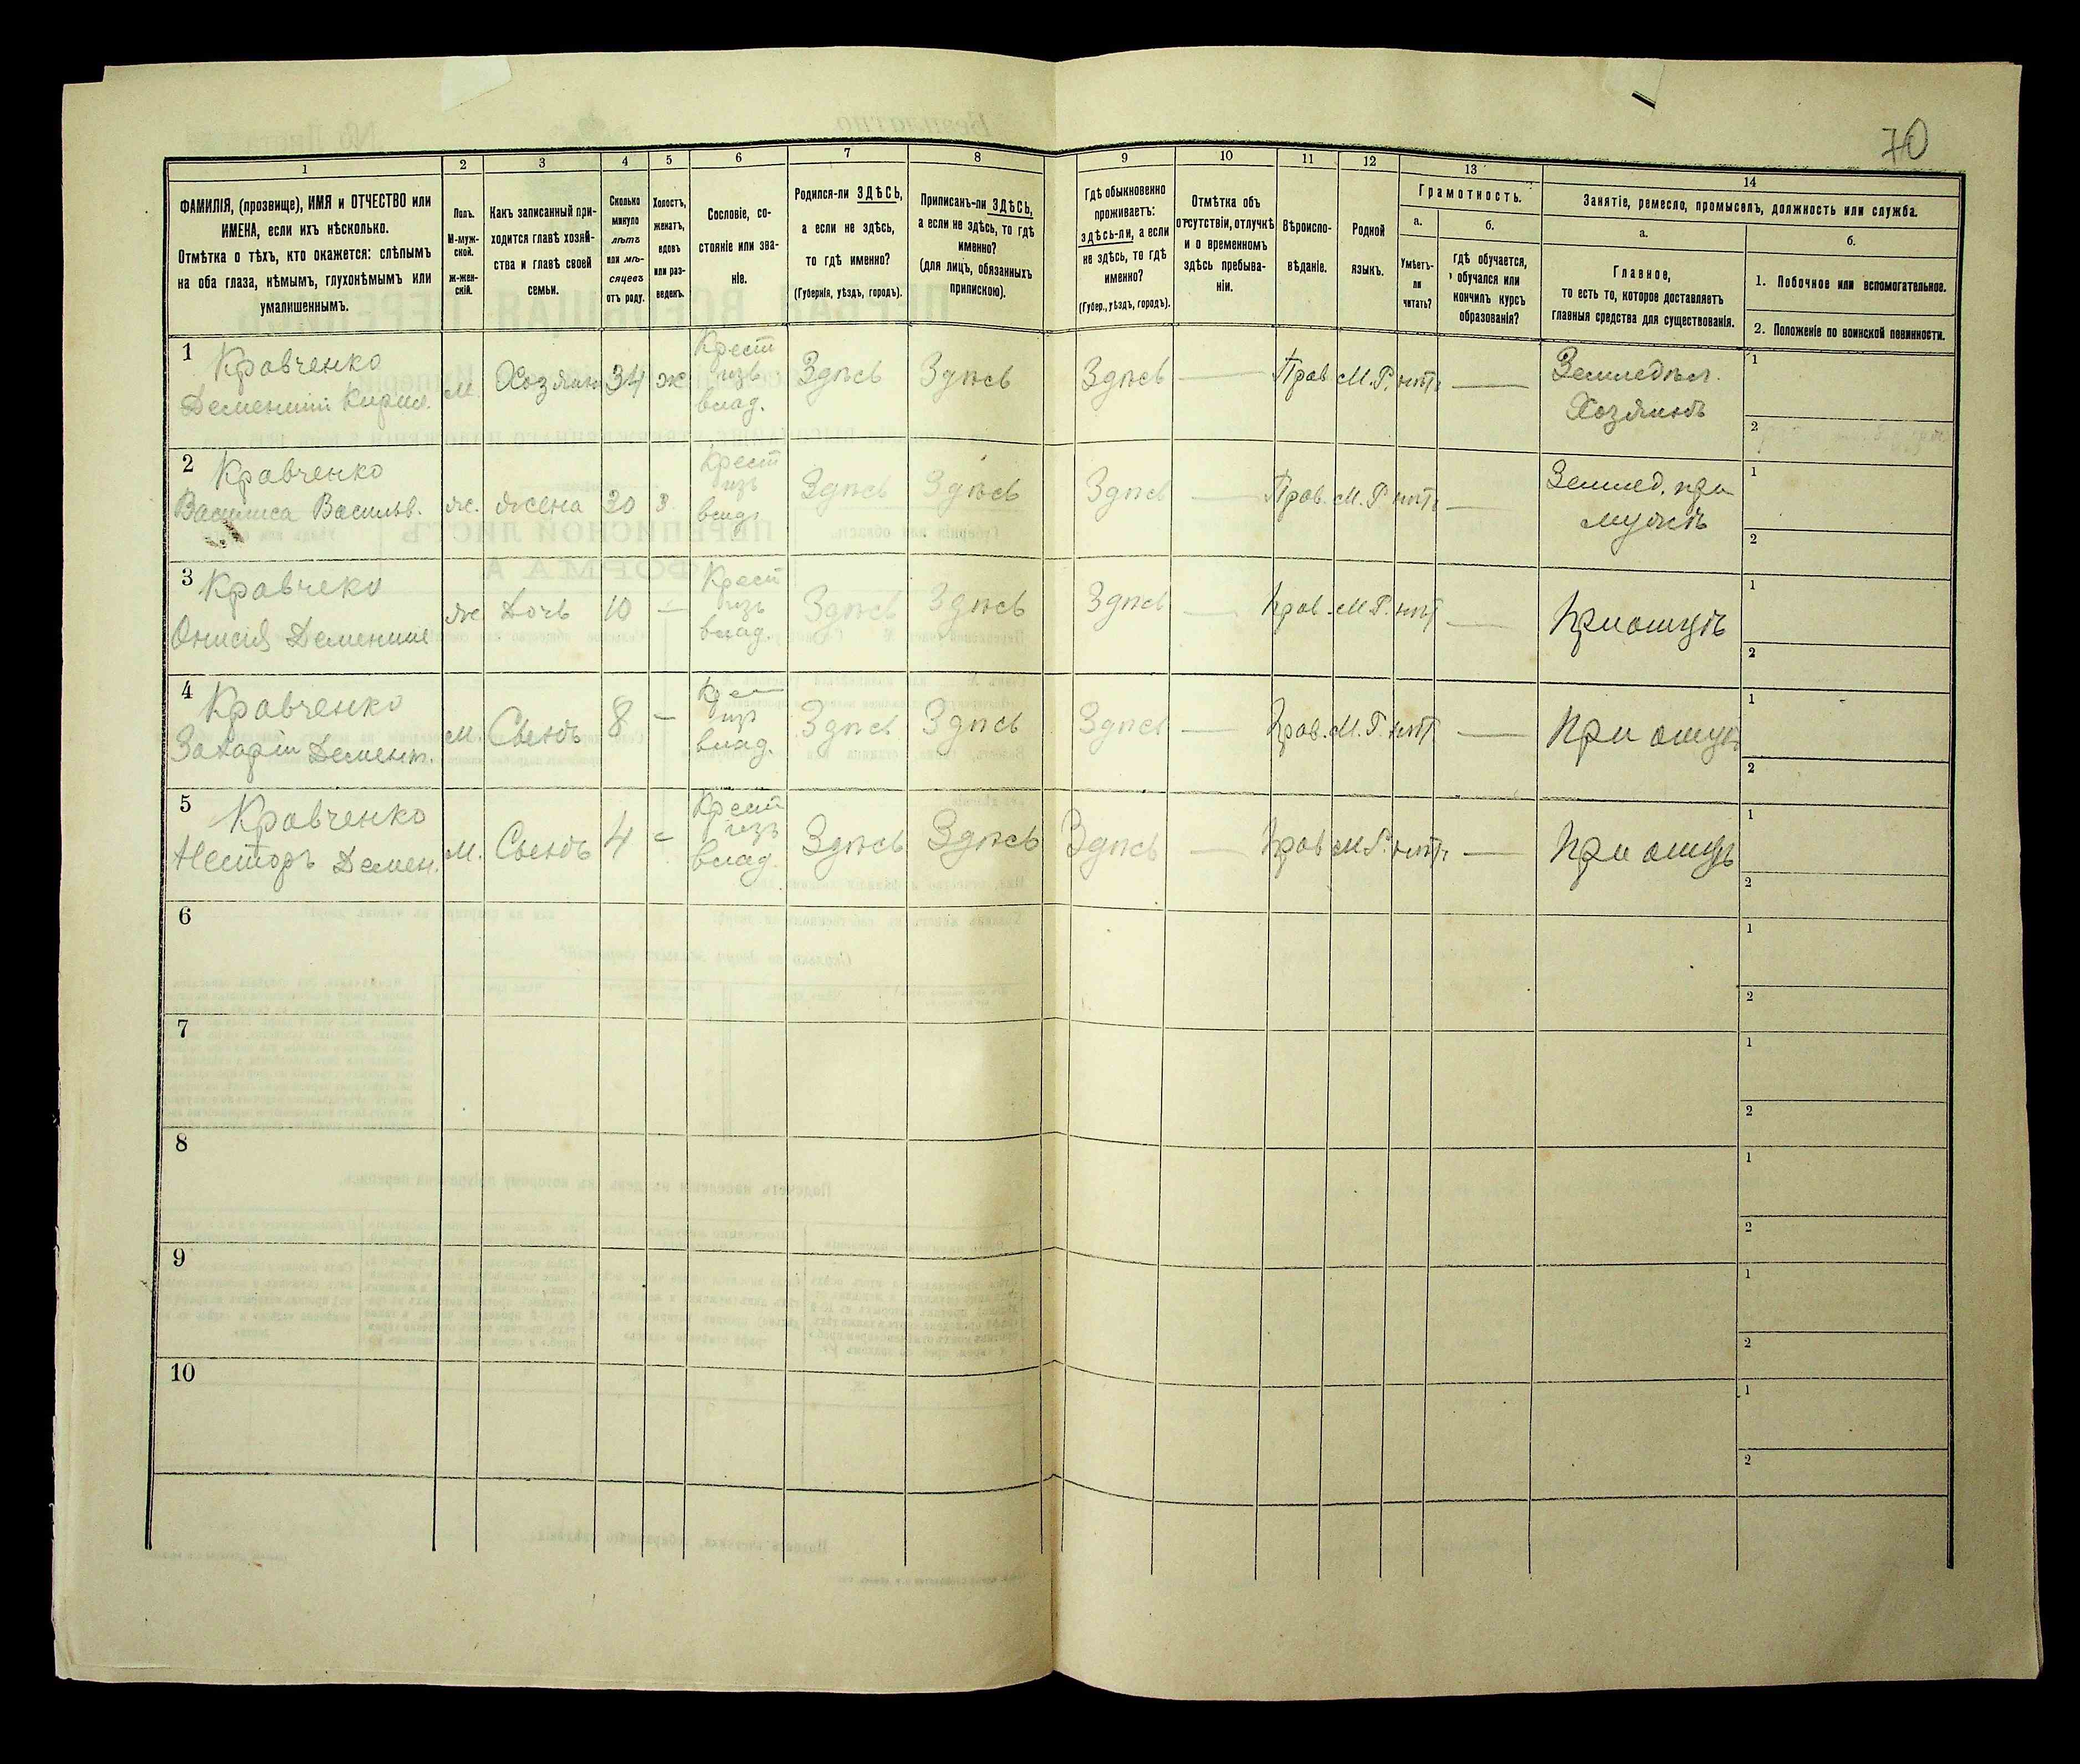 70
1
2
3
4
5
6
7
8
9
10
11
12
13
14
ФАМИЛІЯ, (прозвище), ИМЯ и ОТЧЕСТВО или
ИМЕНА, если ихъ нѣсколько.
Отмѣтка о тѣхъ, кто окажется: слѣпымъ
на оба глаза, нѣмымъ, глухонѣмымъ или
умалишеннымъ.
Полъ.
М-муж-
ской.
ж-жен-
скій.
Какъ записанный при-
ходится главѣ хозяй-
ства и главѣ своей
семьи.
Сколько
минуло
лѣтъ
или мѣ-
сяцевъ
отъ роду.
Холостъ,
женатъ,
вдовъ
или раз-
веденъ.
Сословіе, со-
стояніе или зва-
ніе.
Родился-ли ЗДѢСЬ,
а если не здѣсь,
то гдѣ именно?
(Губернія, уѣздъ, городъ).
Приписанъ-ли ЗДѢСЬ,
а если не здѣсь, то гдѣ
именно?
(для лицъ, обязанныхъ
припискою).
Гдѣ обыкновенно
проживаетъ:
здѣсь-ли, а если
не здѣсь, то гдѣ
именно?
(Губер., уѣздъ, городъ).
Отмѣтка объ
отсутствіи, отлучкѣ
и о временномъ
здѣсь пребыва-
ніи.
Вѣроиспо-
вѣданіе.
Родной
языкъ.
Грамотность.
а.
Умѣетъ-
ли
читать?
б.
гдѣ обучается,
обучался или
кончилъ курсъ
образованія?
Занятіе, ремесло, промыселъ, должность или служба.
а.
Главное,
то есть то, которое доставляетъ
главныя средства для существованія.
б.
1. Побочное или вспомогательное.
2. Положеніе по воинской повинности.
1
Кравченко
Дементій Кирил.
М.
Хозяинъ
34
ж
Крест
изъ
влад.
Здѣсь
Здѣсь
Здѣсь
—
Прав
М.Р.
нѣтъ
—
Земледѣл.
Хозяинъ
1
2
2
Кравченко
Василиса Васильв.
ж.
жена
30
з.
Крест
изъ
влад
Здѣсь
Здѣсь
Здѣсь
—
Прав.
М.Р.
нѣтъ
—
Землед. при
мужѣ
1
2
3
Кравчеко
Онисія Дементие
ж
Дочь
10
—
Крест
изъ
влад.
Здѣсь
Здѣсь
Здѣсь
—
Прав.
М.Р.
нѣт
—
При отцѣ
1
2
4
Кравченко
Захарій Демент.
М.
Сынъ
8
—
Крест
изъ
влад.
Здѣсь
Здѣсь
Здѣсь
—
Прав.
М.Р.
нѣт.
—
При отцѣ
1
2
5
Кравченко
Несторъ Демен.
М.
Сынъ
4
-
Крест
изъ
влад.
Здѣсь
Здѣсь
Здѣсь
—
Прав
М.Р.
нѣтъ
—
При отцѣ
1
2
6
1
2
7
1
2
8
1
2
9
1
2
10
1
2